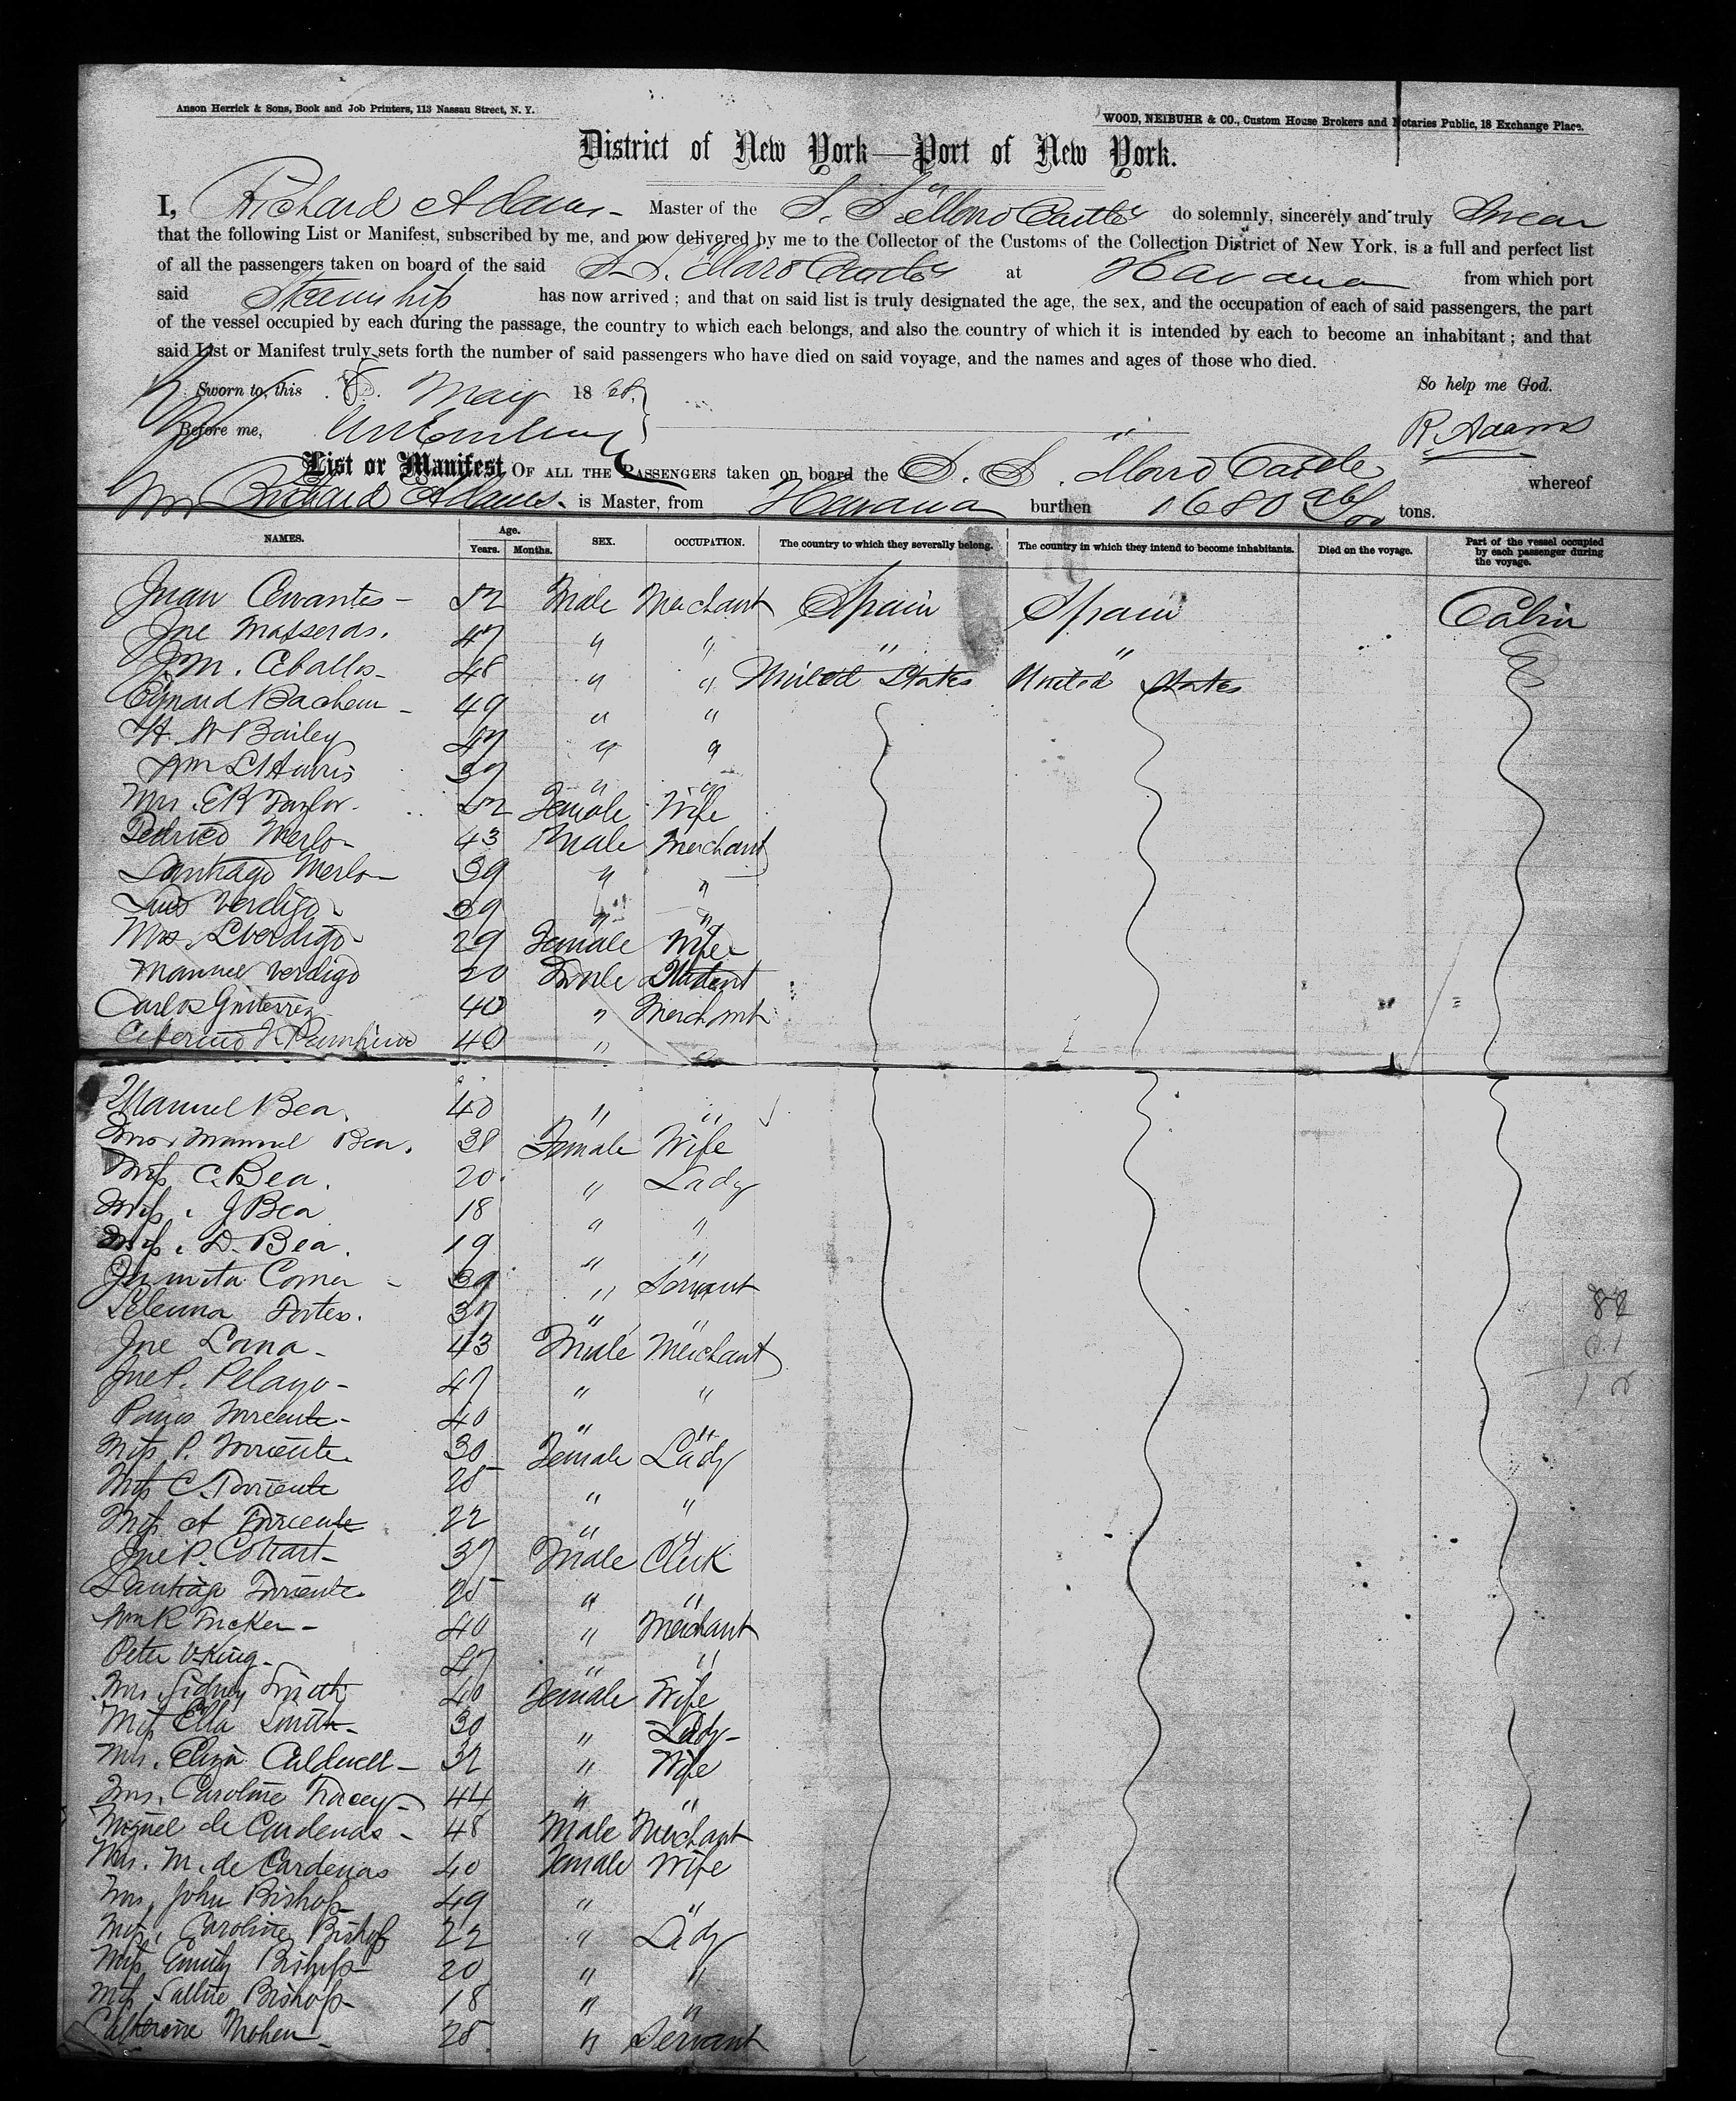 Anson Herrick & Sons, Book and Job Printers, 113 Nassau Street, N. Y.
WOOD, NEIBUHR & CO., Custom House Brokers and Notaries Public, 18 Exchange Place.
District of New York—Port of New York.
I, Richard Adams - Master of the S. S. "Morro Castle" do solemnly, sincerely and truly Swear
that the following List or Manifest, subscribed by me, and now delivered by me to the Collector of the Customs of the Collection District of New York, is a full and perfect list
of all the passengers taken on board of the said S. S. Morro Castle at Havana from which port
said Steamship has now arrived ; and that on said list is truly designated the age, the sex, and the occupation of each of said passengers, the part
of the vessel occupied by each during the passage, the country to which each belongs, and also the country of which it is intended by each to become an inhabitant ; and that
said List or Manifest truly sets forth the number of said passengers who have died on said voyage, and the names and ages of those who died.
Sworn to, this 8. May 1868. So help me God.
Before me, R. Adams
List or Manifest OF ALL THE PASSENGERS taken on board the S. S. Morro Castle whereof
Richard Adams. is Master, from Havana burthen 1680 tons.
NAMES. Age. Years. Months. SEX. OCCUPATION. The country to which they severally belong. The country in which they intend to become inhabitants. Died on the voyage. Part of the vessel occupied by each passenger during the voyage.
Juan Cervantes - 52 Male Merchant Spain Spain Cabin
Jose Masseras. 47 " " " "
J M. Ceballos - 48 " " United States United States
Bachem - 49 " "
H W Bailey 47 " "
Wm L Harris 37 " "
Mrs. E R Taylor. 52 Female Wife
Merlo - 43 Male Merchant
Santiago Merlo - 39 " "
Luis Verdigo - 39 " "
Mrs. L Verdigo - 29 Female Wife
Manuel Verdigo 20 Male Student
Carlos Gutierrez 40 " Merchant
Ceferino 40 " "
Manuel Bea. 40 " "
Mrs Manuel Bea. 38 Female Wife
Miss C. Bea. 20 " Lady
Miss. J Bea 18 " "
Miss. D. Bea. 19 " "
Juanita Comer - 39 " Servant
Fortes. 37 " "
Jose Lama - 43 Male Merchant
Jose P. Pelayo - 47 " "
Torriente - 40 " "
Miss P. Torriente 30 Female Lady
Miss C. Torriente 25 " "
Miss A Torriente 22 " "
Jose P. 37 Male Clerk
Santiago Torriente 25 " "
Wm R Tucker - 40 " Merchant
Peter V King - 47 " "
Mrs Sidney Smith 40 Female Wife
Miss Ella Smith - 30 " Lady -
Mrs. Eliza Caldwell - 32 " Wife
Mrs. Caroline Tracey - 44 " "
Miguel de Cardenas - 48 Male Merchant
Mrs. M. de Cardenas 40 Female Wife
Mrs. John Bishop - 49 " "
Miss. Caroline Bishop 22 " Lady
Miss Emily Bishop - 20 " "
Miss Sallie Bishop - 18 " "
Catherine Mohen - 25. " Servant
88